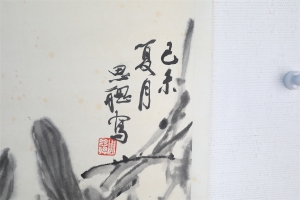 己未
夏月
思聪寫